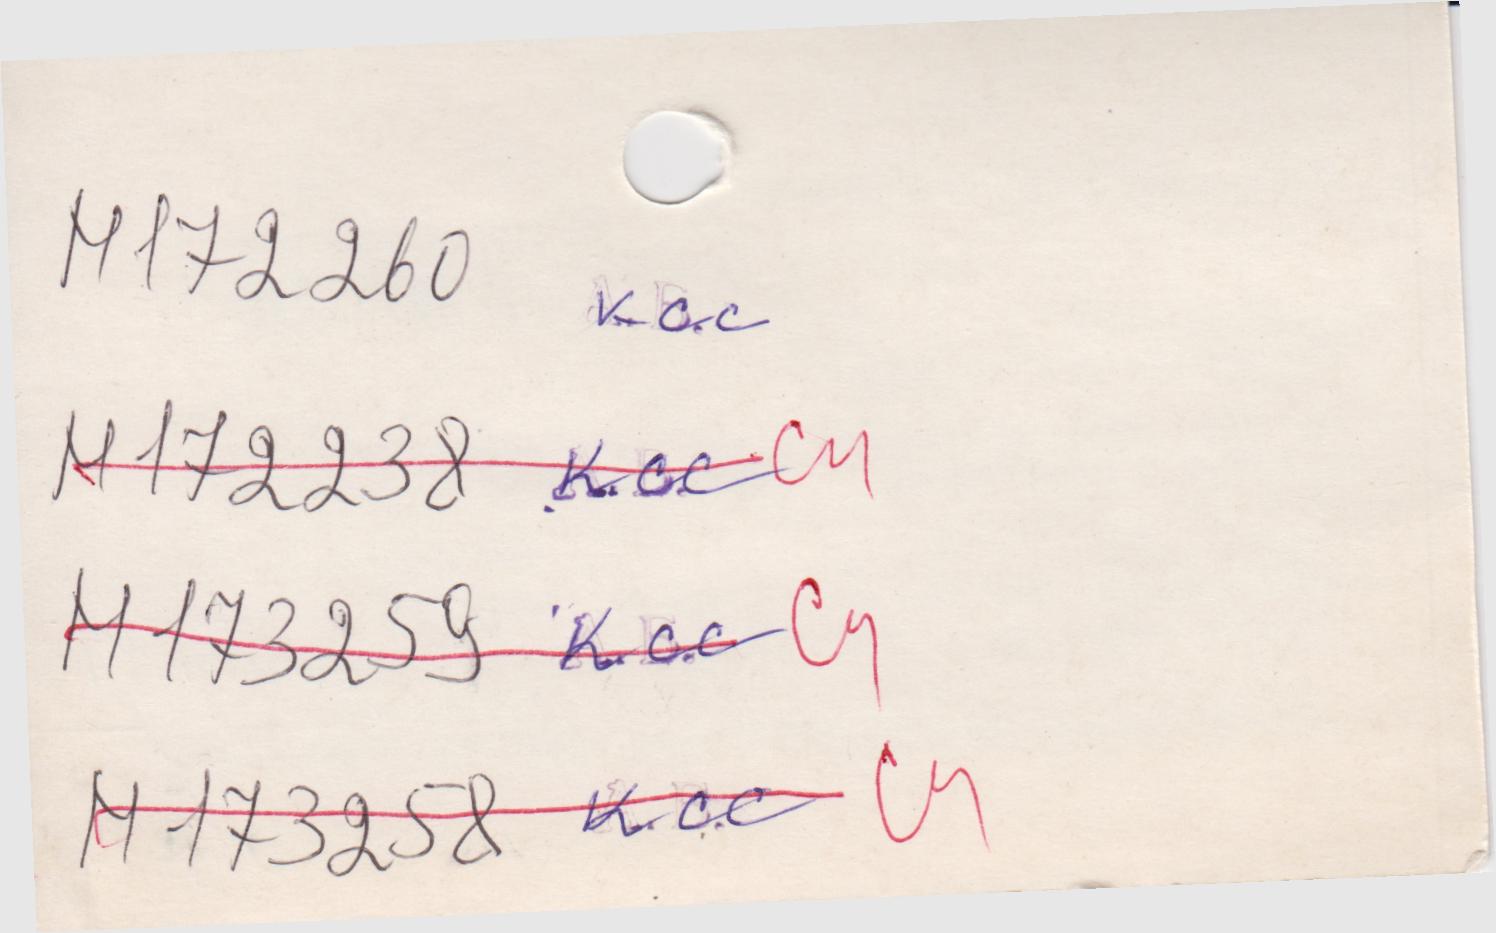 М172260 К.С.С
М172238 К.С.С Сч
М173259 К.С.С Сч
М173258 К.С.С Сч